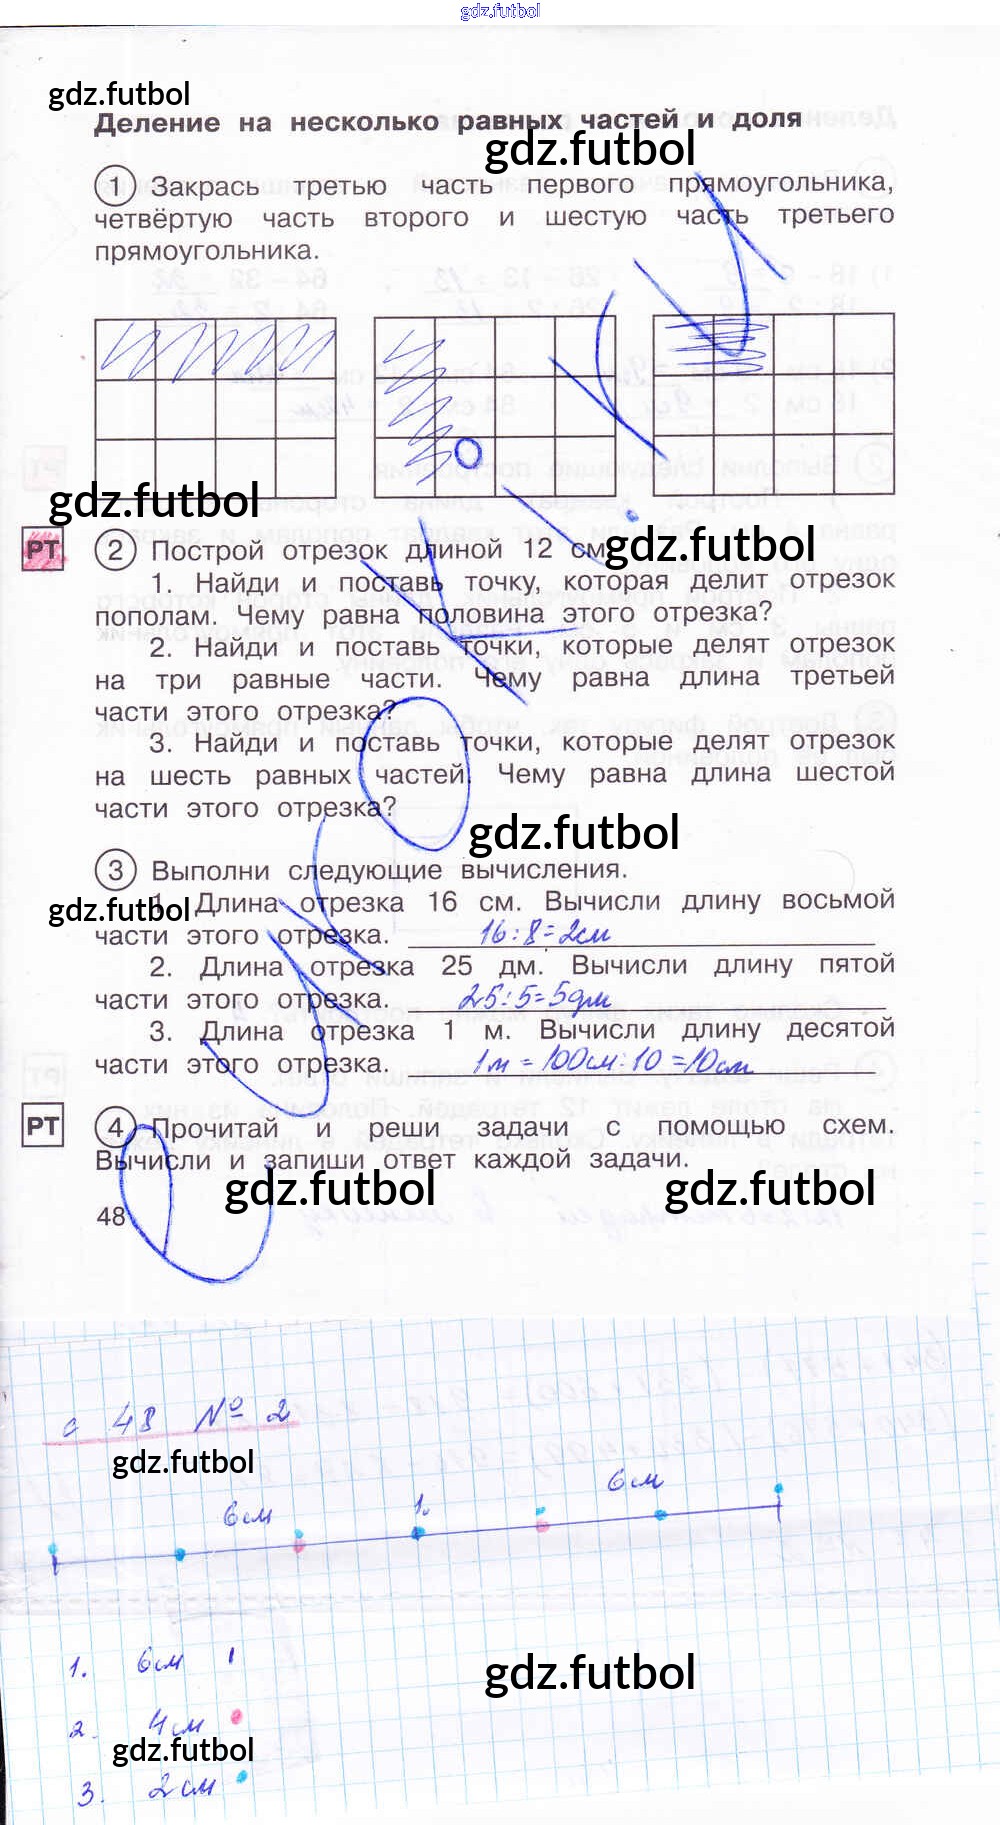 gdz.futbol
gdz.futbol
Деление на несколько равных частей и доля
gdz.futbol
1 Закрась третью часть первого прямоугольника,
четвёртую часть второго и шестую часть третьего
прямоугольника.
gdz.futbol
РТ 2 Построй отрезок длиной 12 см.
gdz.futbol
1. Найди и поставь точку, которая делит отрезок
пополам. Чему равна половина этого отрезка?
2. Найди и поставь точки, которые делят отрезок
на три равные части. Чему равна длина третьей
части этого отрезка?
3. Найди и поставь точки, которые делят отрезок
на шесть равных частей. Чему равна длина шестой
части этого отрезка?
gdz.futbol
3 Выполни следующие вычисления.
1. Длина отрезка 16 см. Вычисли длину восьмой
gdz.futbol
части этого отрезка. 16:8=2см
2. Длина отрезка 25 дм. Вычисли длину пятой
части этого отрезка. 25:5=5дм
3. Длина отрезка 1 м. Вычисли длину десятой
части этого отрезка. 1м = 100см:10=10см
РТ 4 Прочитай и реши задачи с помощью схем.
Вычисли и запиши ответ каждой задачи.
gdz.futbol gdz.futbol
48
с 48 № 2
gdz.futbol
6см 1. 6см
1. 6см
gdz.futbol
2. 4см
gdz.futbol
3. 2см